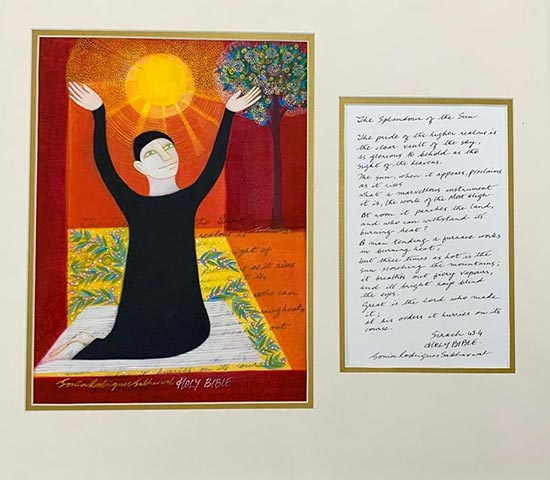 The Splendour of the Sun
realms
ght of
as it rises
its
who can
burning heat,
out
on its course
Sonia Rodrigues Sabharwal HOLY BIBLE
The Splendour of the Sun
The pride of the higher realms is
the clear vault of the sky,
as glorious to behold as the
sight of the heavens.
The sun, when it appears, proclaims
as it rises
what a marvellous instrument
it is, the work of the Most High
At noon it parches the land,
and who can withstand its
burning heat?
A man tending a furnace works
in burning heat,
but three times as hot is the
sun scorching the mountains;
it breathes out fiery vapours,
and its bright rays blind
the eyes.
Great is the Lord who made
it;
at his orders it hurries on its
course.
Sirach 43.4
HOLY BIBLE.
Sonia Rodrigues Sabharwal